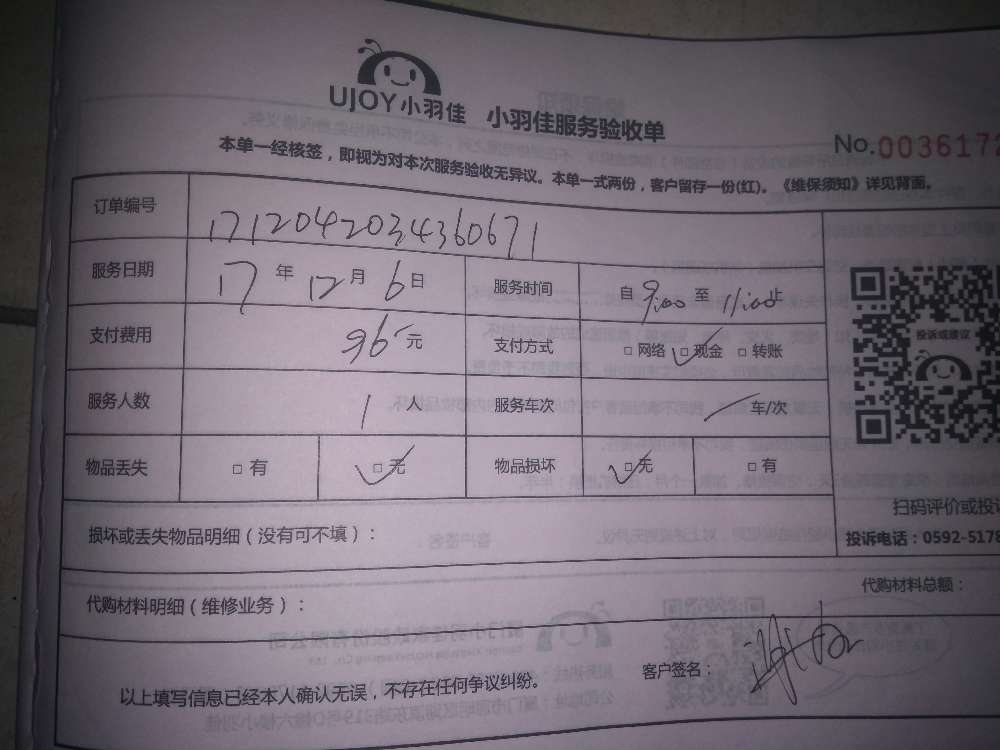 UJOY小羽佳 小羽佳服务验收单
No.0036172
本单一经核签，即视为对本次服务验收无异议。本单一式两份，客户留存一份(红)。《维保须知》详见背面。
订单编号 1712042034360671
服务日期 17 年 12 月 6 日 服务时间 自 9:00 至 11:00 止
支付费用 96 元 支付方式 □ 网络 □ 现金 □ 转账
服务人数 1 服务车次 车/次
物品丢失 □ 有 □ 无 物品损坏 □ 无 □ 有
投诉或建议
扫码评价或投诉
损坏或丢失物品明细（没有可不填）：
投诉电话：0592-5178
代购材料明细（维修业务）： 代购材料总额：
以上填写信息已经本人确认无误，不存在任何争议纠纷。 客户签名：